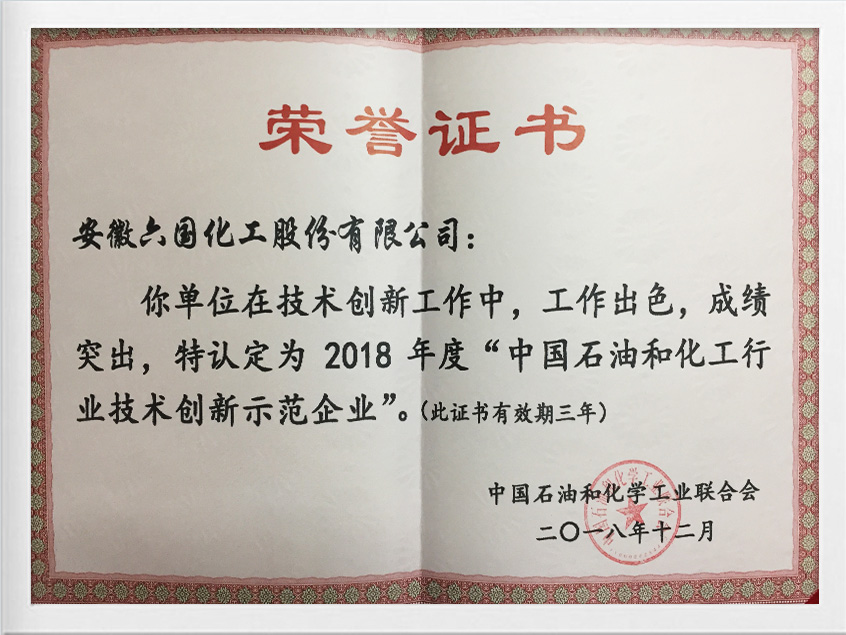 荣誉证书
安徽六国化工股份有限公司：
你单位在技术创新工作中，工作出色，成绩
突出，特认定为 2018 年度“中国石油和化工行
业技术创新示范企业”。（此证书有效期三年）
中国石油和化学工业联合会
二〇一八年十二月
中国石油和化学工业联合会